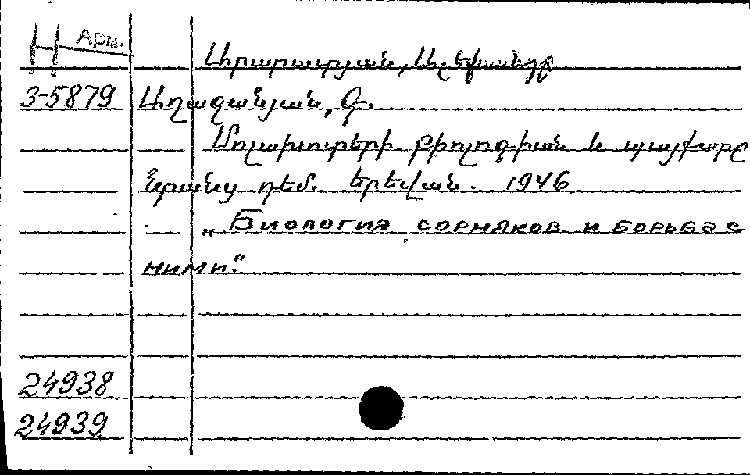 Н Арм.
Արարատյան, Աշխանույշ
3-5879 Աղազանյան, Գ.
Մոլախոտերի բիոլոգիան և պայքարը
նրանց դեմ. Երևան. 1946
„Биология сорняков и борьба с
ними."
24938
24939